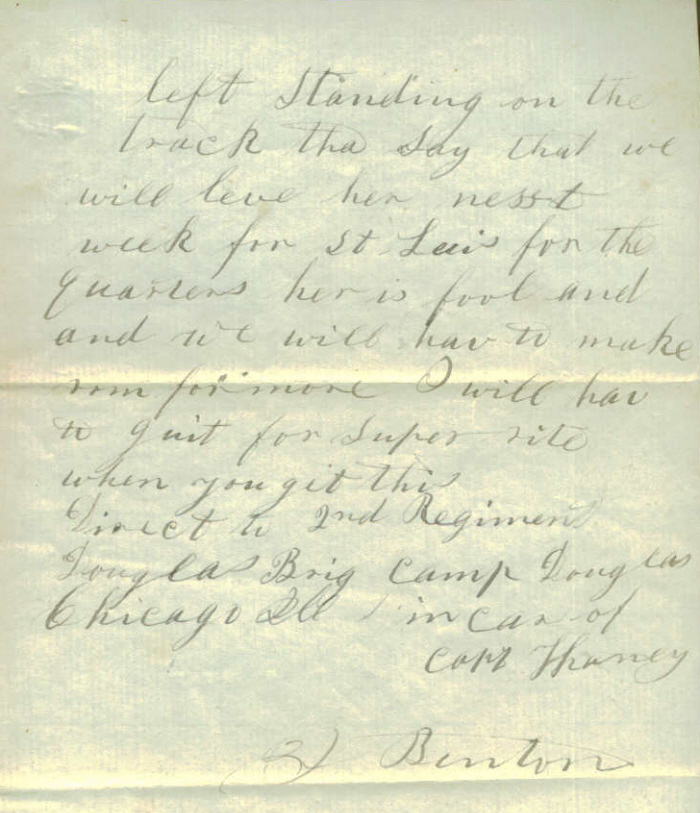 left standing on the
track tha say that we
will leve her nesst
week for St Luis for the
quarters her is fool and
and we will hav to make
rom for more I will hav
to quit for super rite
when you git this
Direct to 2nd Regiment
Douglas Brig Camp Douglas
Chicago Ill in car of
Capt Haney
Benton